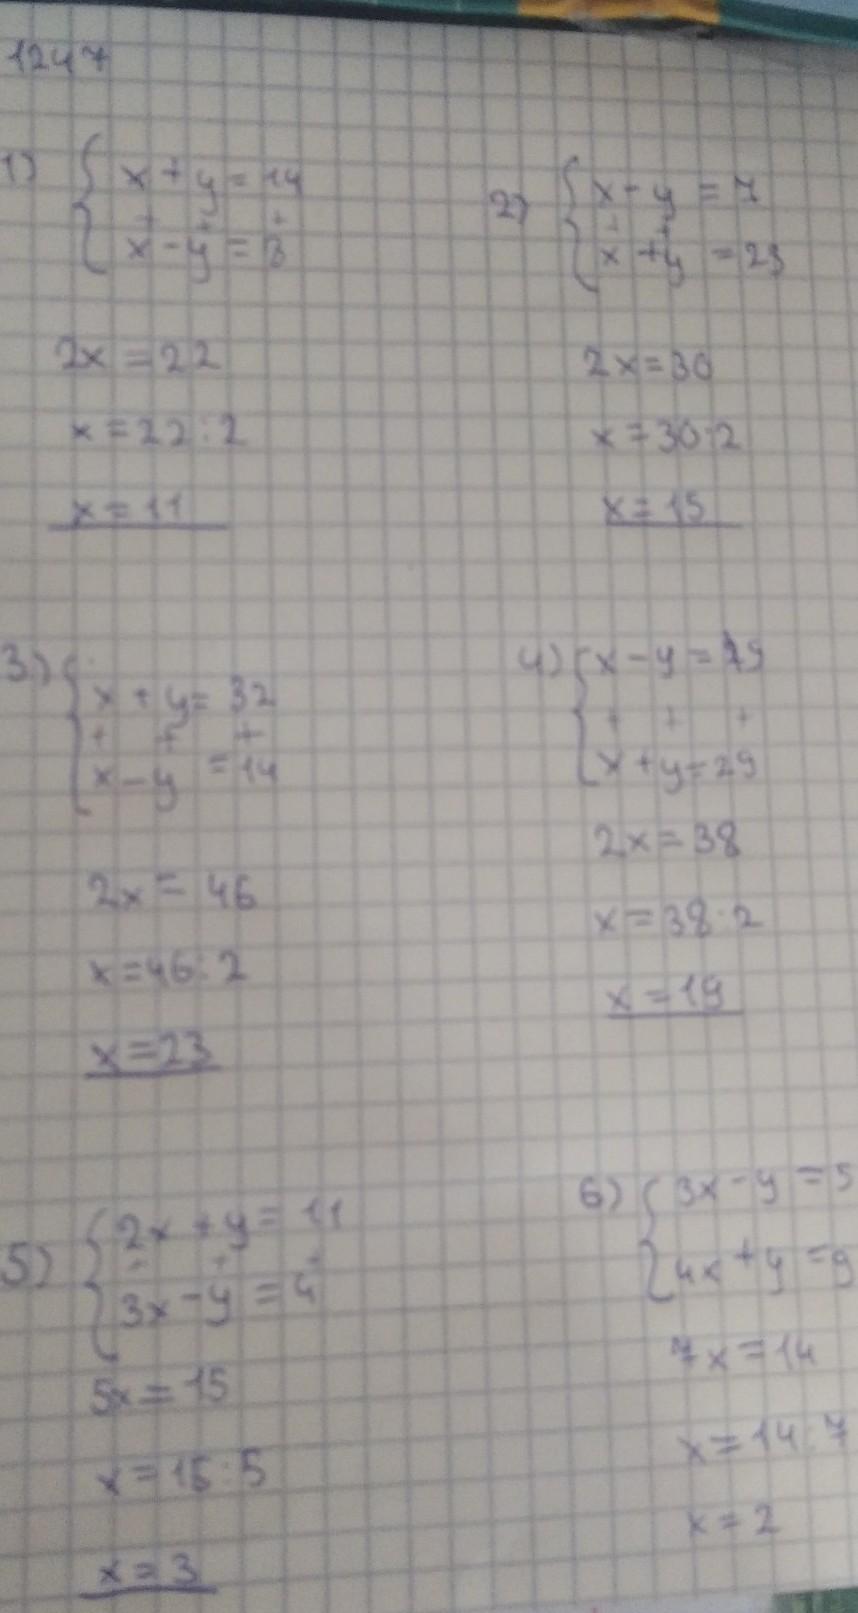 1247
1) { x + y = 14
+ + +
x - y = 8
2x = 22
x = 22 : 2
x = 11
2) { x - y = 7
+ +
x + y = 23
2x = 30
x = 30 : 2
x = 15
3) { x + y = 32
+ + +
x - y = 14
2x = 46
x = 46 : 2
x = 23
4) { x - y = 29
+ + +
x + y = 29
2x = 38
x = 38 : 2
x = 19
5) { 2x + y = 11
+ + +
3x - y = 4
5x = 15
x = 15 : 5
x = 3
6) { 3x - y = 5
4x + y = 9
7x = 14
x = 14 : 7
x = 2